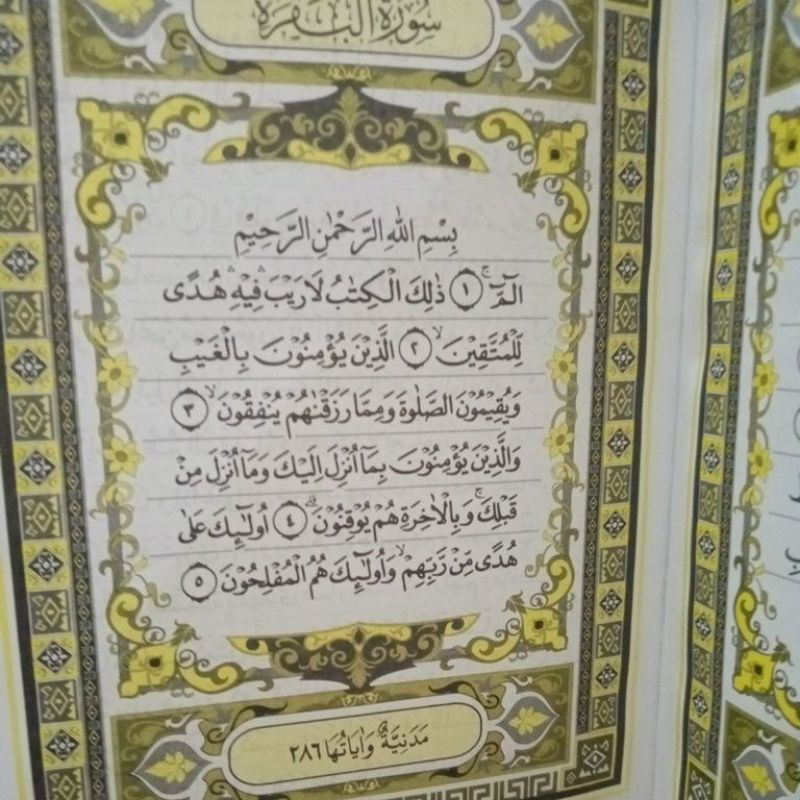 سُورَةُ الْبَقَرَة
بِسْمِ اللّٰهِ الرَّحْمٰنِ الرَّحِيْمِ
الٓمّٓ ۚ ۝١ ذٰلِكَ الْكِتٰبُ لَا رَيْبَ ۛ فِيْهِ ۛ هُدًى
لِّلْمُتَّقِيْنَ ۙ ۝٢ الَّذِيْنَ يُؤْمِنُوْنَ بِالْغَيْبِ
وَيُقِيْمُوْنَ الصَّلٰوةَ وَمِمَّا رَزَقْنٰهُمْ يُنْفِقُوْنَ ۙ ۝٣
وَالَّذِيْنَ يُؤْمِنُوْنَ بِمَآ اُنْزِلَ اِلَيْكَ وَمَآ اُنْزِلَ مِنْ
قَبْلِكَ ۚ وَبِالْاٰخِرَةِ هُمْ يُوْقِنُوْنَ ۗ ۝٤ اُولٰۤىِٕكَ عَلٰى
هُدًى مِّنْ رَّبِّهِمْ ۙ وَاُولٰۤىِٕكَ هُمُ الْمُفْلِحُوْنَ ۝٥
مَدَنِيَّةٌ وَاٰيَاتُهَا ٢٨٦